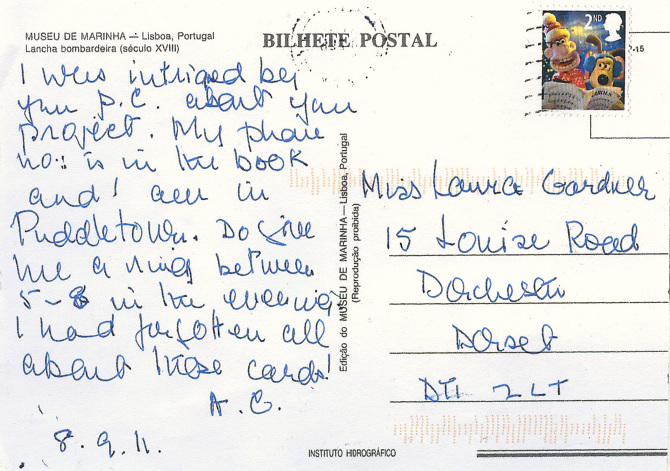 MUSEU DE MARINHA — Lisboa, Portugal
Lancha bombardeira (século XVIII)
BILHETE POSTAL
2ND
-15
I was intrigued by
your p.c. about your
project. My phone
no: is in the book
and I am in
Puddletown. Do give
me a ring between
5-8 in the evening
I had forgotten all
about these cards!
A. G.
8.9.11.
Edição do MUSEU DE MARINHA — Lisboa, Portugal
(Reprodução proibida)
Miss Laura Gardner
15 Louise Road
Dorchester
Dorset
DT1 2LT
INSTITUTO HIDROGRÁFICO